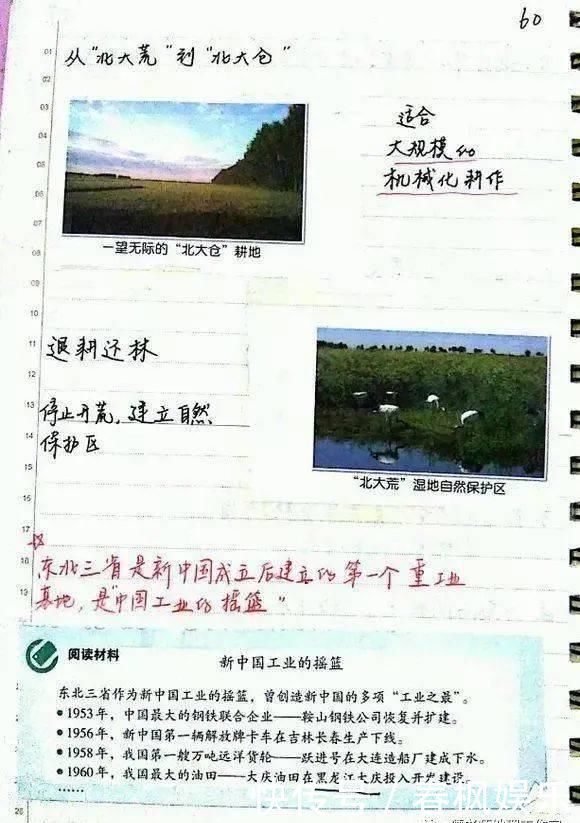 60
从“北大荒”到“北大仓”
适合
大规模的
机械化耕作
一望无际的“北大仓”耕地
退耕还林
停止开荒，建立自然
保护区
“北大荒”湿地自然保护区
东北三省是新中国成立后建立的第一个重工业
基地，是“中国工业的摇篮”
阅读材料
新中国工业的摇篮
东北三省作为新中国工业的摇篮，曾创造新中国的多项“工业之最”。
●1953年，中国最大的钢铁联合企业——鞍山钢铁公司恢复并扩建。
●1956年，新中国第一辆解放牌卡车在吉林长春生产下线。
●1958年，我国第一艘万吨远洋货轮——跃进号在大连造船厂建成下水。
●1960年，我国最大的油田——大庆油田在黑龙江大庆投入开发建设。
……
快传号 / 春枫娱乐